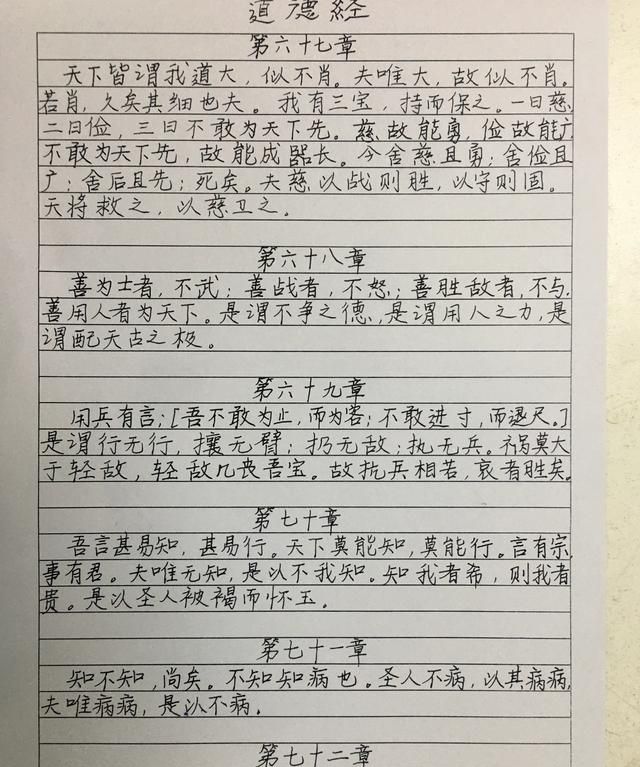 道德經
第六十七章
天下皆谓我道大，似不肖。夫唯大，故似不肖。
若肖，久矣其细也夫。我有三宝，持而保之。一曰慈，
二曰俭，三曰不敢为天下先。慈故能勇，俭故能广
不敢为天下先，故能成器长。今舍慈且勇；舍俭且
广；舍后且先；死矣。夫慈以战则胜，以守则固。
天将救之，以慈卫之。
第六十八章
善为士者，不武；善战者，不怒；善胜敌者，不与，
善用人者为天下。是谓不争之德，是谓用人之力，是
谓配天古之极。
第六十九章
用兵有言；[吾不敢为止，而为客；不敢进寸，而退尺。]
是谓行无行，攘无臂；扔无敌；执无兵。祸莫大
于轻敌，轻敌几丧吾宝。故抗兵相若，哀者胜矣。
第七十章
吾言甚易知，甚易行。天下莫能知，莫能行。言有宗，
事有君。夫唯无知，是以不我知。知我者希，则我者
贵。是以圣人被褐而怀玉。
第七十一章
知不知，尚矣。不知知病也。圣人不病，以其病病，
夫唯病病，是以不病。
第七十二章